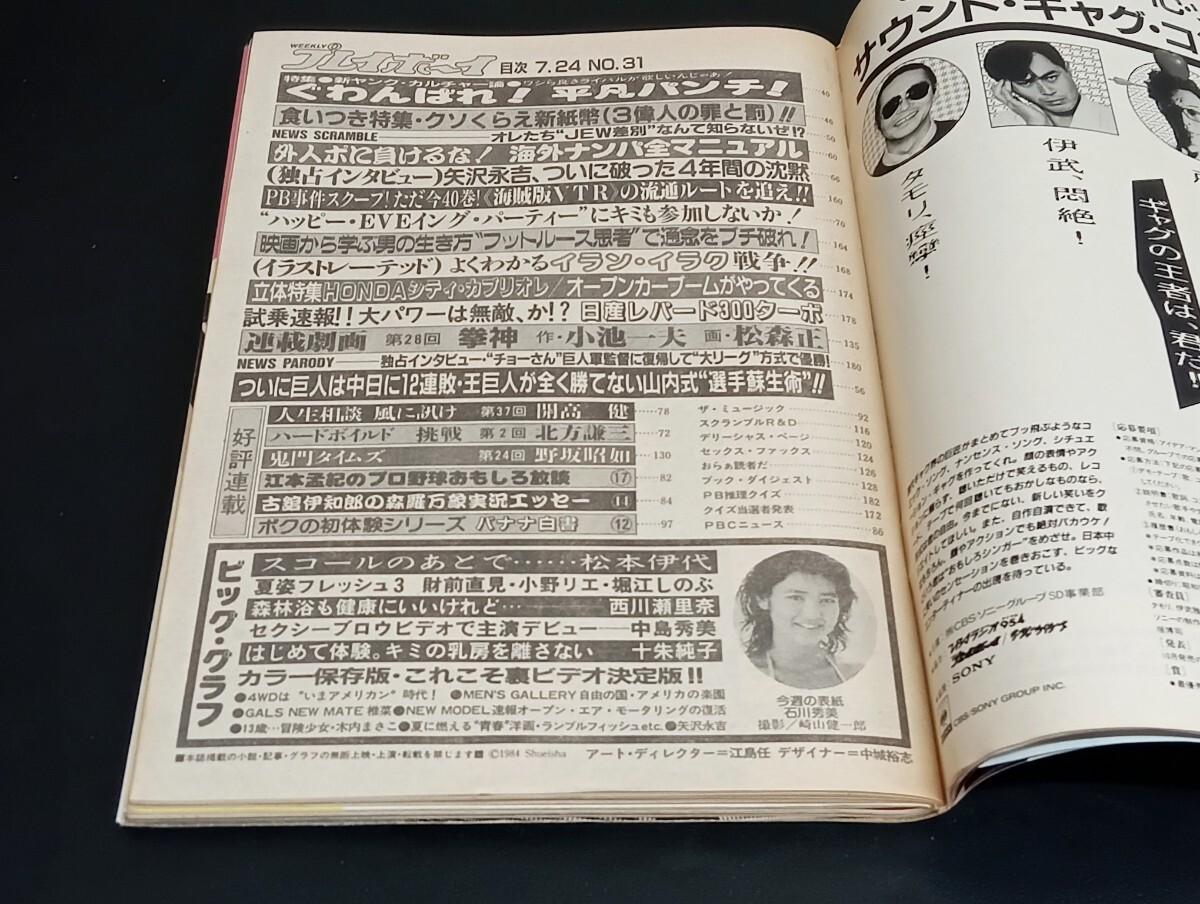 WEEKLY プレイボーイ 目次 7.24 NO.31
特集●新ヤング・カルチャー論●ワシら良きライバルが欲しいんじゃあ!
ぐわんばれ! 平凡パンチ! 40
食いつき特集・クソくらえ新紙幣(3偉人の罪と罰)!! 46
NEWS SCRAMBLE オレたち"JEW差別"なんて知らないぜ!? 50
外人ボに負けるな! 海外ナンパ全マニュアル 60
(独占インタビュー)矢沢永吉、ついに破った4年間の沈黙 66
PB事件スクープ!ただ今40巻!《海賊版VTR》の流通ルートを追え!! 160
"ハッピー・EVEイング・パーティー"にキミも参加しないか! 70
映画から学ぶ男の生き方"フットルース思考"で通念をブチ破れ! 164
(イラストレーテッド)よくわかるイラン・イラク戦争!! 168
立体特集HONDAシティ・カブリオレ/オープンカーブームがやってくる 174
試乗速報!!大パワーは無敵、か!?日産レパード300ターボ 178
連載劇画 第28回 拳神 作・小池一夫 画・松森正 135
NEWS PARODY 独占インタビュー・"チョーさん"巨人軍監督に復帰して"大リーグ"方式で優勝! 180
ついに巨人は中日に12連敗・王巨人が全く勝てない山内式"選手蘇生術"!! 56
好評連載
人生相談 風に訊け 第37回 開高 健 78
ハードボイルド 挑戦 第2回 北方謙三 72
鬼門タイムズ 第24回 野坂昭如 130
江本孟紀のプロ野球おもしろ放談 ⑰ 82
古舘伊知郎の森羅万象実況エッセー ⑪ 84
ボクの初体験シリーズ バナナ白書 ⑫ 97
ザ・ミュージック 92
スクランブルR&D 116
デリーシャス・ページ 120
セックス・ファックス 124
おらぁ読者だ 126
ブック・ダイジェスト 128
PB推理クイズ 182
クイズ当選者発表 172
PBCニュース 86
ビッグ・グラフ
スコールのあとで……松本伊代
夏姿フレッシュ3 財前直見・小野リエ・堀江しのぶ
森林浴も健康にいいけれど… 西川瀬里奈
セクシーブロウビデオで主演デビュー 中島秀美
はじめて体験。キミの乳房を離さない 十朱純子
カラー保存版・これこそ裏ビデオ決定版!!
●4WDは"いまアメリカン"時代! ●MEN'S GALLERY自由の国・アメリカの楽園
●GALS NEW MATE 椎菜 ●NEW MODEL速報オープン・エア・モータリングの復活
●13歳…冒険少女・木内まさこ ●夏に燃える"青春"洋画・ランブルフィッシュetc. ●矢沢永吉
今週の表紙
石川秀美
撮影/崎山健一郎
■本誌掲載の小説・記事・グラフの無断上映・上演・転載を禁じます ©1984 Shueisha アート・ディレクター=江島任 デザイナー=中城裕志
サウンド・ギャグ・コ
タモリ、痙攣!
伊武、悶絶!
ギャグの王者は、君だ!!
CBSソニーグループSD事業部
SONY
CBS/SONY GROUP INC.
[応募要項]
[審査員]
[発表]
[賞]